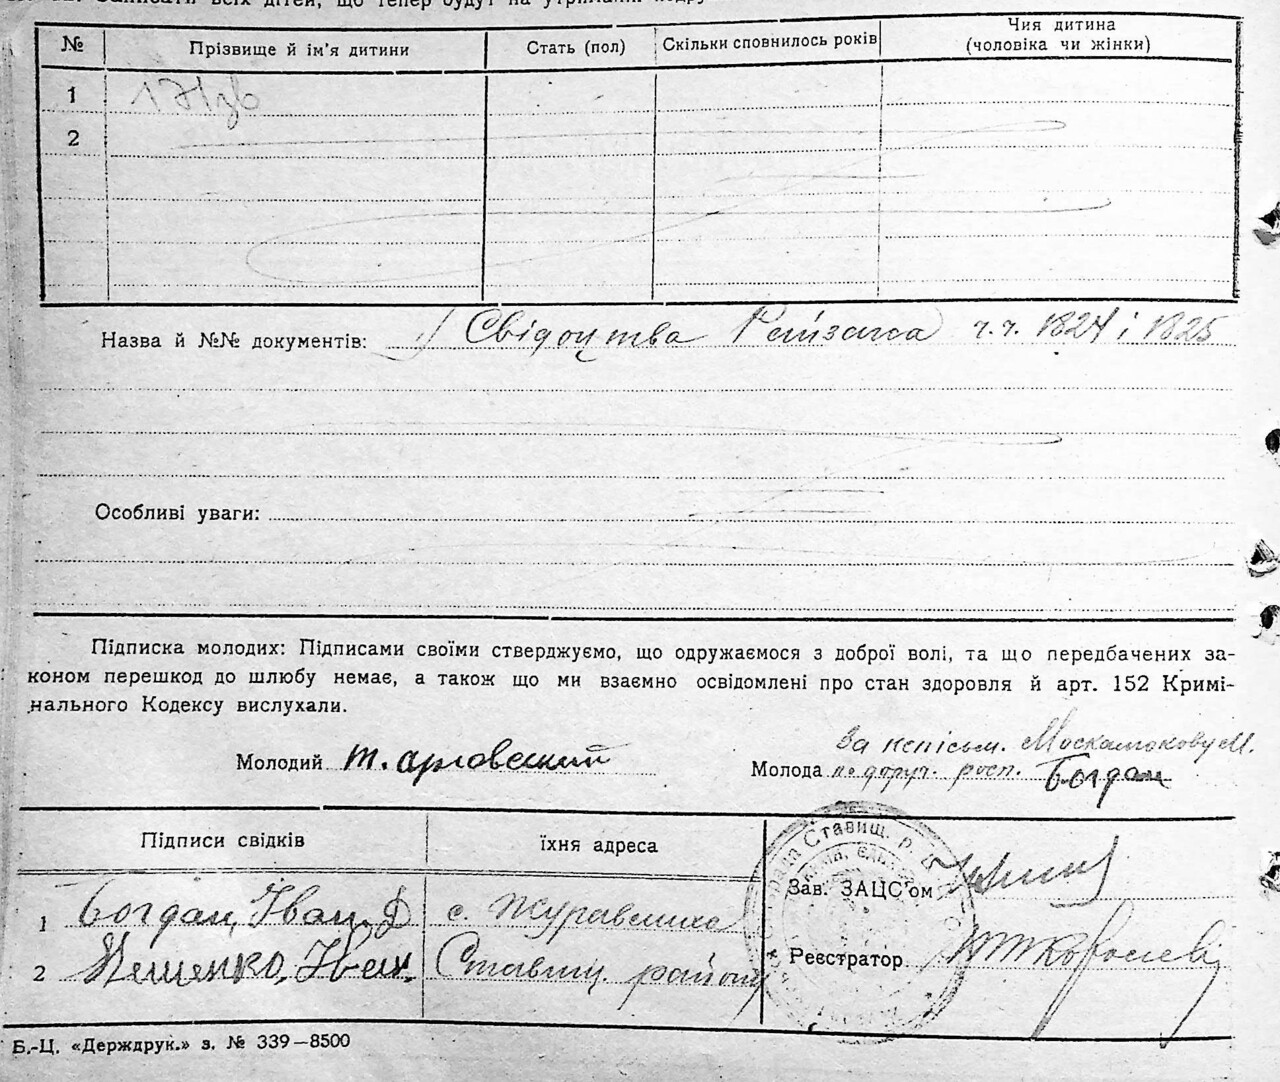 Записати всіх дітей, що тепер будут на утриманні
№ Прізвище й ім'я дитини Стать (пол) Скільки сповнилось років Чия дитина (чоловіка чи жінки)
1
2
Назва й №№ документів: 1) Свідоцтва Райзагса ч.ч. 1824 і 1825
Особливі уваги:
Підписка молодих: Підписами своїми стверджуємо, що одружаємося з доброї волі, та що передбачених за-
коном перешкод до шлюбу немає, а також що ми взаємно освідомлені про стан здоровля й арт. 152 Кримі-
нального Кодексу вислухали.
За неписьм. М.
Молодий Молода по доруч. росп. Богдан
Підписи свідків їхня адреса
Ставищ. р.
Зав. ЗАЦС'ом
1 Богдан, Іван Д с.
2 Іван. Ставищ. району
Реєстратор
Б.-Ц. «Держдрук.» з. № 339—8500